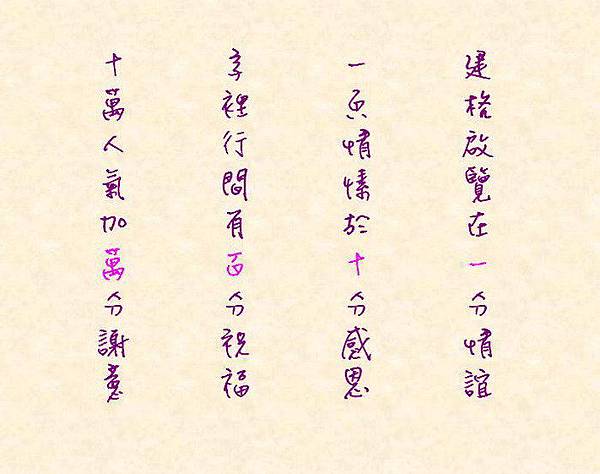 建格啟覽在一分情誼
一頁情愫於十分感恩
字裡行間有百分祝福
十萬人氣加萬分謝意